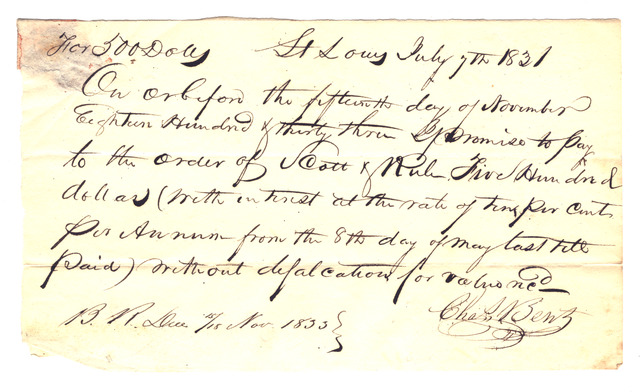 For 500 Dolls St Louis July 7th 1831
On or before the fifteenth day of November
Eighteen Hundred & thirty three I promise to pay
to the order of Scott & Rule Five Hundred
dollars (with interest at the rate of ten per cent
per Annum from the 8th day of may last till
paid) without defalcation for value recd
Chas Bent
B. R. Due Nov. 1833